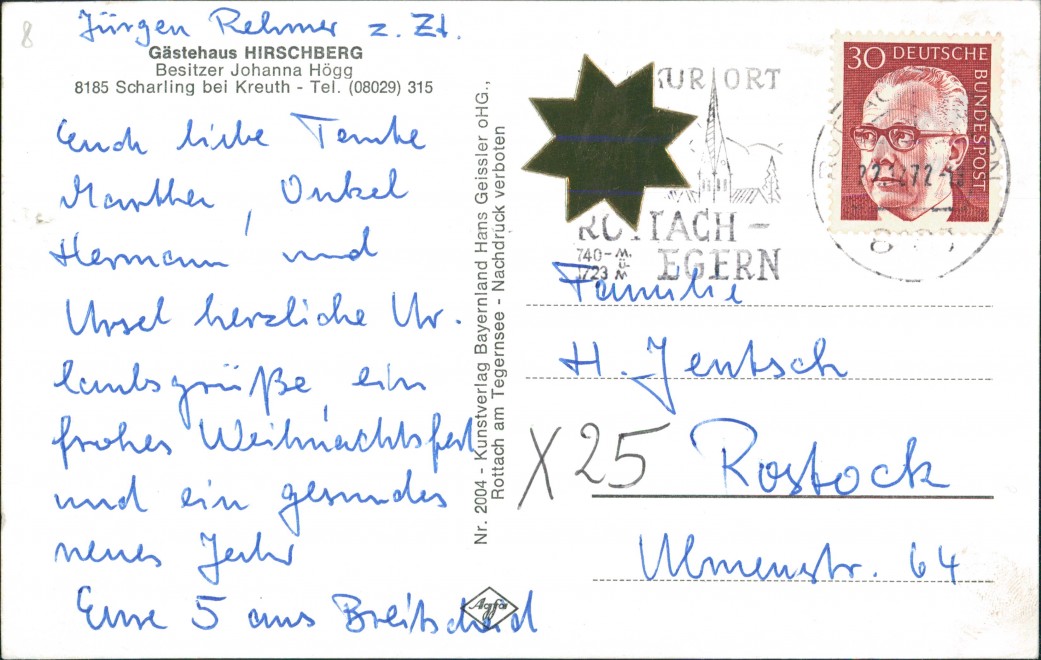 8
Jürgen Rehmer z. Zt.
Gästehaus HIRSCHBERG
Besitzer Johanna Högg
8185 Scharling bei Kreuth - Tel. (08029) 315
Euch liebe Tante
Martha, Onkel
Hermann und
Ursel herzliche Ur-
laubsgrüße ein
frohes Weihnachtsfest
und ein gesundes
neues Jahr
Eure 5 aus Breitscheid
Nr. 2004 - Kunstverlag Bayernland Hans Geissler oHG.,
Rottach am Tegernsee - Nachdruck verboten
Agfa
KURORT
ROTTACH-
EGERN
740-
723
30 DEUTSCHE
BUNDESPOST
Familie
H. Jentsch
X25 Rostock
Ulmenstr. 64